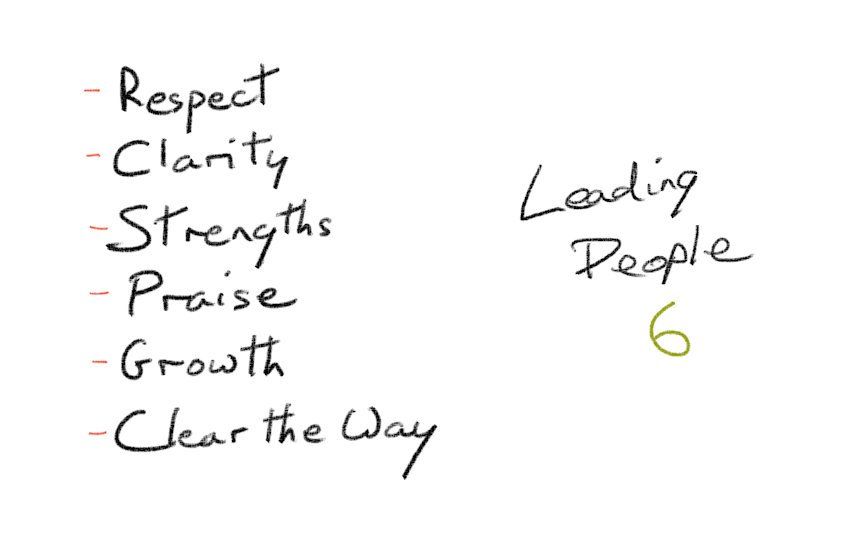 - Respect
- Clarity
- Strengths
- Praise
- Growth
- Clear the Way
Leading
People
6